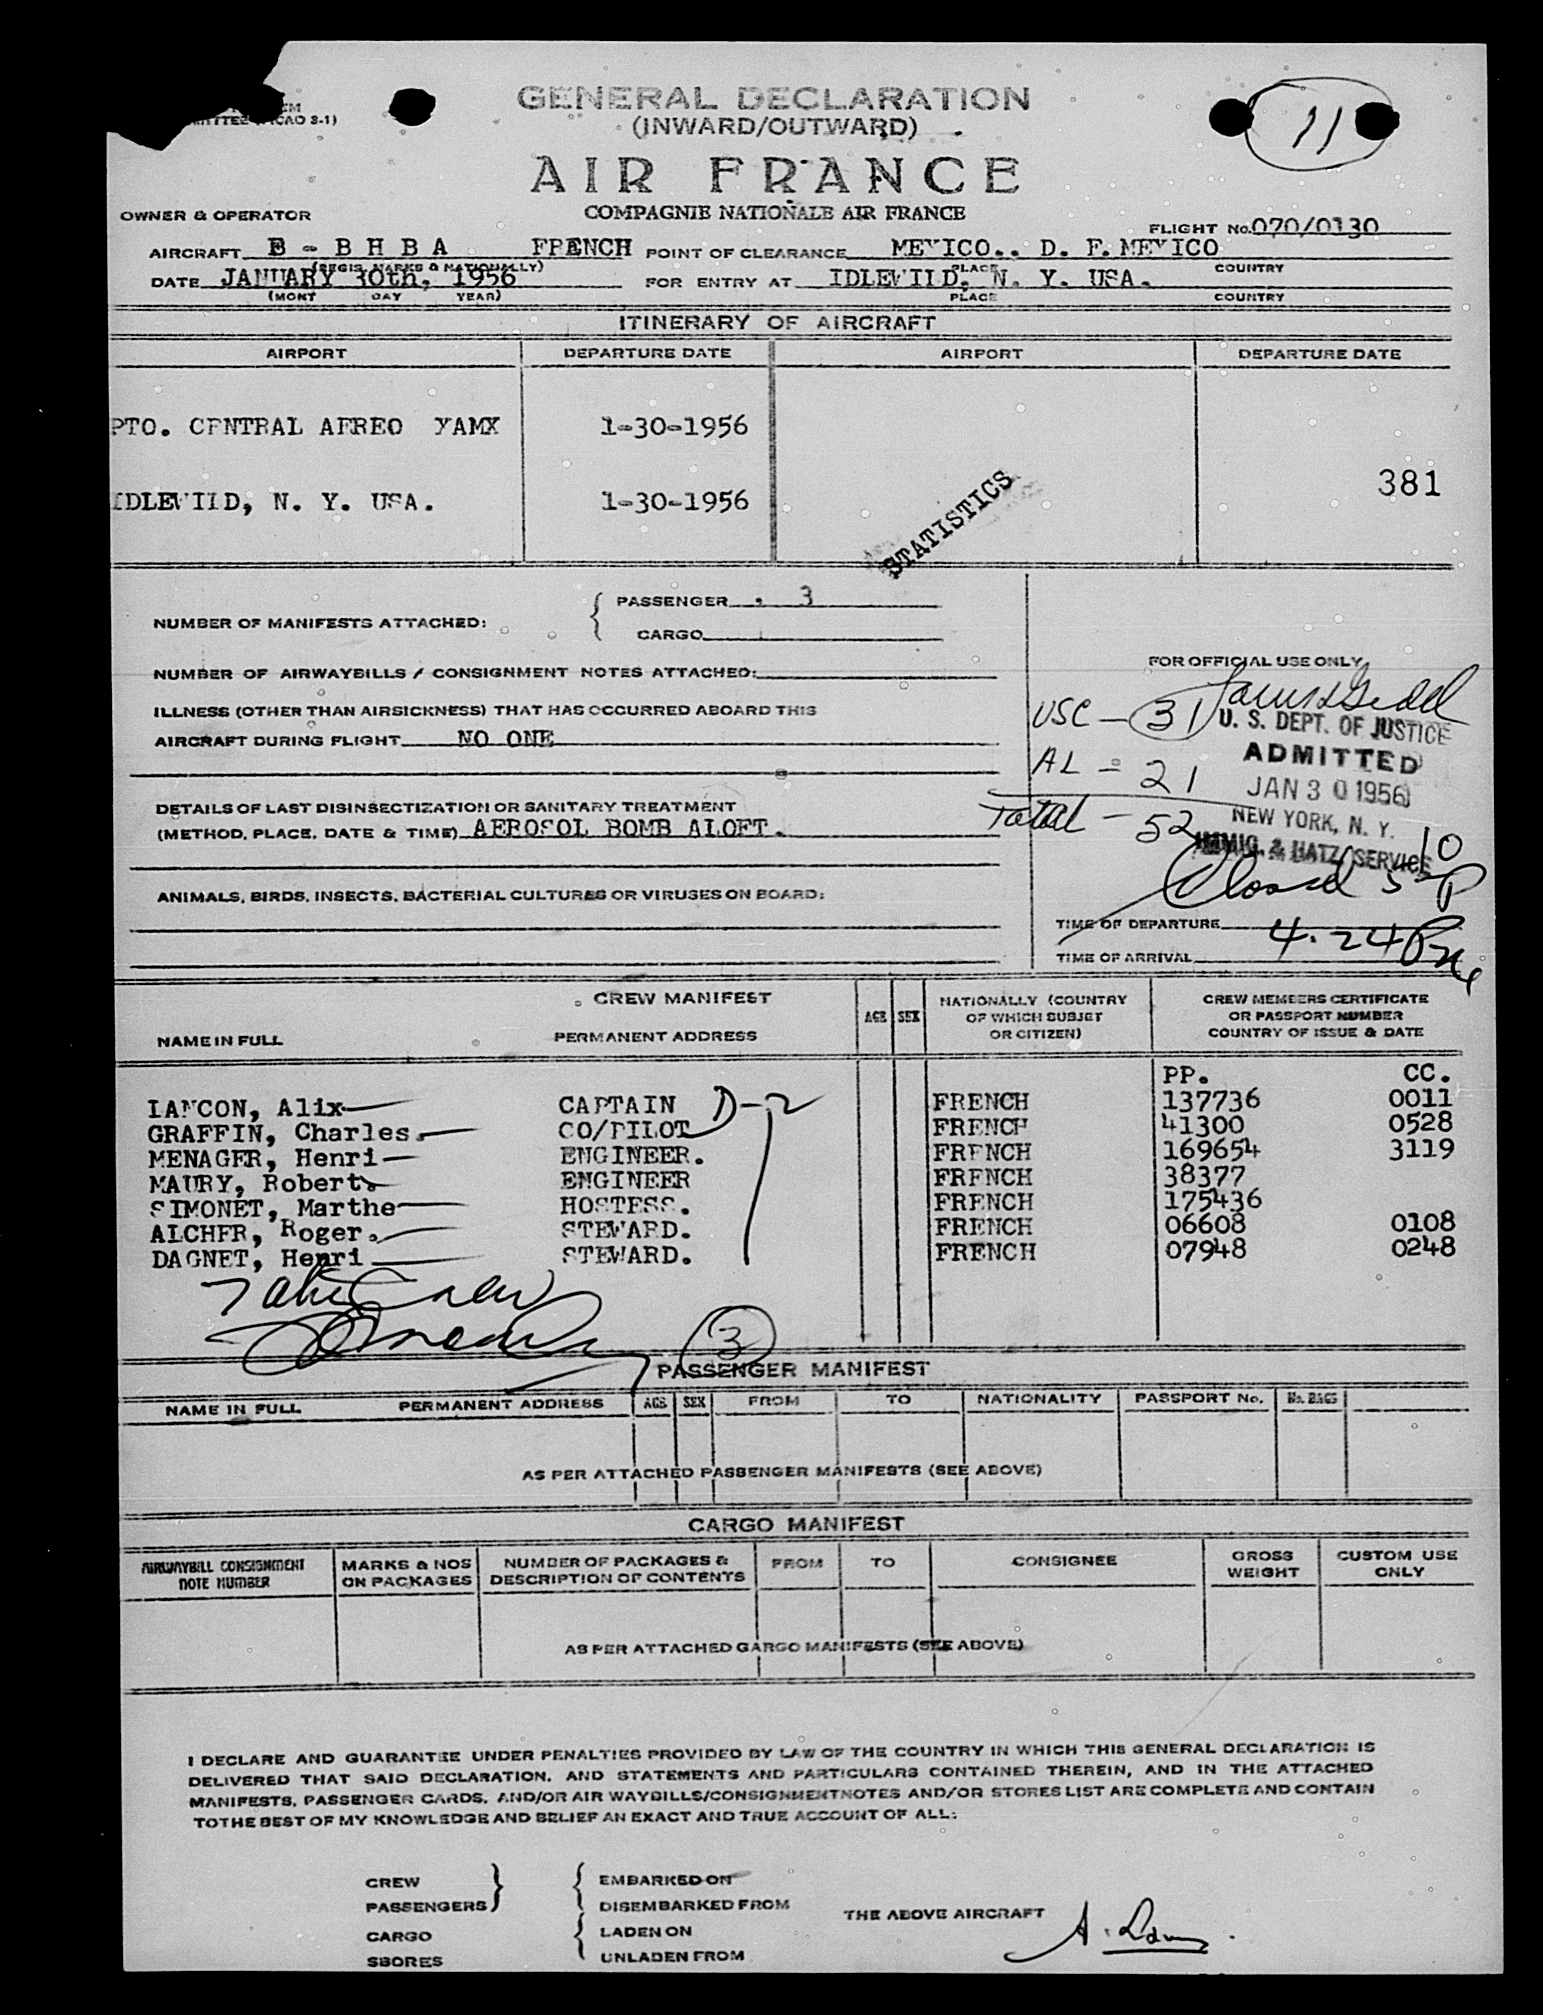 GENERAL DECLARATION
(INWARD/OUTWARD)
11
AIR FRANCE
COMPAGNIE NATIONALE AIR FRANCE
OWNER & OPERATOR
FLIGHT No. 070/0130
AIRCRAFT B - B H B A FRENCH POINT OF CLEARANCE MEXICO.. D. F. MEXICO
(REGIS. MARKS & NATIONALLY) PLACE COUNTRY
DATE JANUARY 30th, 1956 FOR ENTRY AT IDLEWILD, N. Y. USA.
(MONT DAY YEAR) PLACE COUNTRY
ITINERARY OF AIRCRAFT
AIRPORT DEPARTURE DATE AIRPORT DEPARTURE DATE
PTO. CENTRAL AEREO XAMX 1-30-1956
381
IDLEWILD, N. Y. USA. 1-30-1956
STATISTICS
NUMBER OF MANIFESTS ATTACHED:
PASSENGER 3
CARGO
NUMBER OF AIRWAYBILLS / CONSIGNMENT NOTES ATTACHED:
ILLNESS (OTHER THAN AIRSICKNESS) THAT HAS OCCURRED ABOARD THIS
AIRCRAFT DURING FLIGHT NO ONE
DETAILS OF LAST DISINSECTIZATION OR SANITARY TREATMENT
(METHOD, PLACE, DATE & TIME) AEROSOL BOMB ALOFT.
ANIMALS, BIRDS, INSECTS, BACTERIAL CULTURES OR VIRUSES ON BOARD:
FOR OFFICIAL USE ONLY
USC - 31
AL = 21
Total - 52
U. S. DEPT. OF JUSTICE
ADMITTED
JAN 30 1956
NEW YORK, N. Y.
IMMIG. & NATZ. SERVICE
Closed 5 10 P
TIME OF DEPARTURE
TIME OF ARRIVAL 4.24 Pm
CREW MANIFEST
NAME IN FULL PERMANENT ADDRESS AGE SEX NATIONALLY (COUNTRY OF WHICH SUBJET OR CITIZEN) CREW MEMBERS CERTIFICATE OR PASSPORT NUMBER COUNTRY OF ISSUE & DATE
PP. CC.
LAMCON, Alix CAPTAIN D-2 FRENCH 137736 0011
GRAFFIN, Charles. CO/PILOT FRENCH 41300 0528
MENAGER, Henri ENGINEER. FRENCH 169654 3119
MAURY, Robert. ENGINEER FRENCH 38377
SIMONET, Marthe HOSTESS. FRENCH 175436
ALCHER, Roger. STEWARD. FRENCH 06608 0108
DAGNET, Henri STEWARD. FRENCH 07948 0248
Crew
3
PASSENGER MANIFEST
NAME IN FULL PERMANENT ADDRESS AGE SEX FROM TO NATIONALITY PASSPORT No. No. BAGS
AS PER ATTACHED PASSENGER MANIFESTS (SEE ABOVE)
CARGO MANIFEST
AIRWAYBILL CONSIGNMENT NOTE NUMBER MARKS & NOS ON PACKAGES NUMBER OF PACKAGES & DESCRIPTION OF CONTENTS FROM TO CONSIGNEE GROSS WEIGHT CUSTOM USE ONLY
AS PER ATTACHED GARGO MANIFESTS (SEE ABOVE)
I DECLARE AND GUARANTEE UNDER PENALTIES PROVIDED BY LAW OF THE COUNTRY IN WHICH THIS GENERAL DECLARATION IS
DELIVERED THAT SAID DECLARATION, AND STATEMENTS AND PARTICULARS CONTAINED THEREIN, AND IN THE ATTACHED
MANIFESTS, PASSENGER CARDS, AND/OR AIR WAYBILLS/CONSIGNMENTNOTES AND/OR STORES LIST ARE COMPLETE AND CONTAIN
TO THE BEST OF MY KNOWLEDGE AND BELIEF AN EXACT AND TRUE ACCOUNT OF ALL:
CREW EMBARKED ON
PASSENGERS DISEMBARKED FROM
THE ABOVE AIRCRAFT
CARGO LADEN ON
SBORES UNLADEN FROM